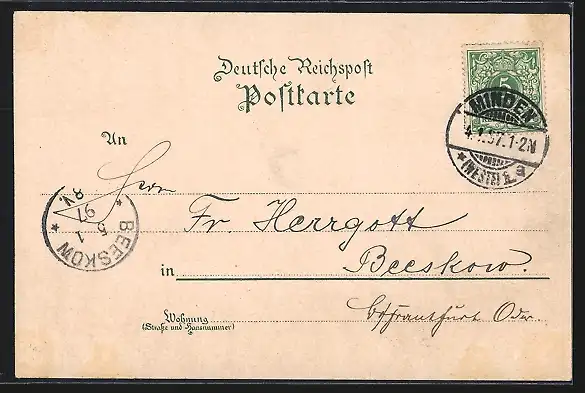 Deutsche Reichspost
Postkarte
5
MINDEN
4.1.97.1-2N
* (WESTF.) 1. e
An
Herrn
Fr. Herrgott
in Beeskow.
Wohnung
(Straße und Hausnummer)
b/Frankfurt Oder
BEESKOW
5 1
97
8V.